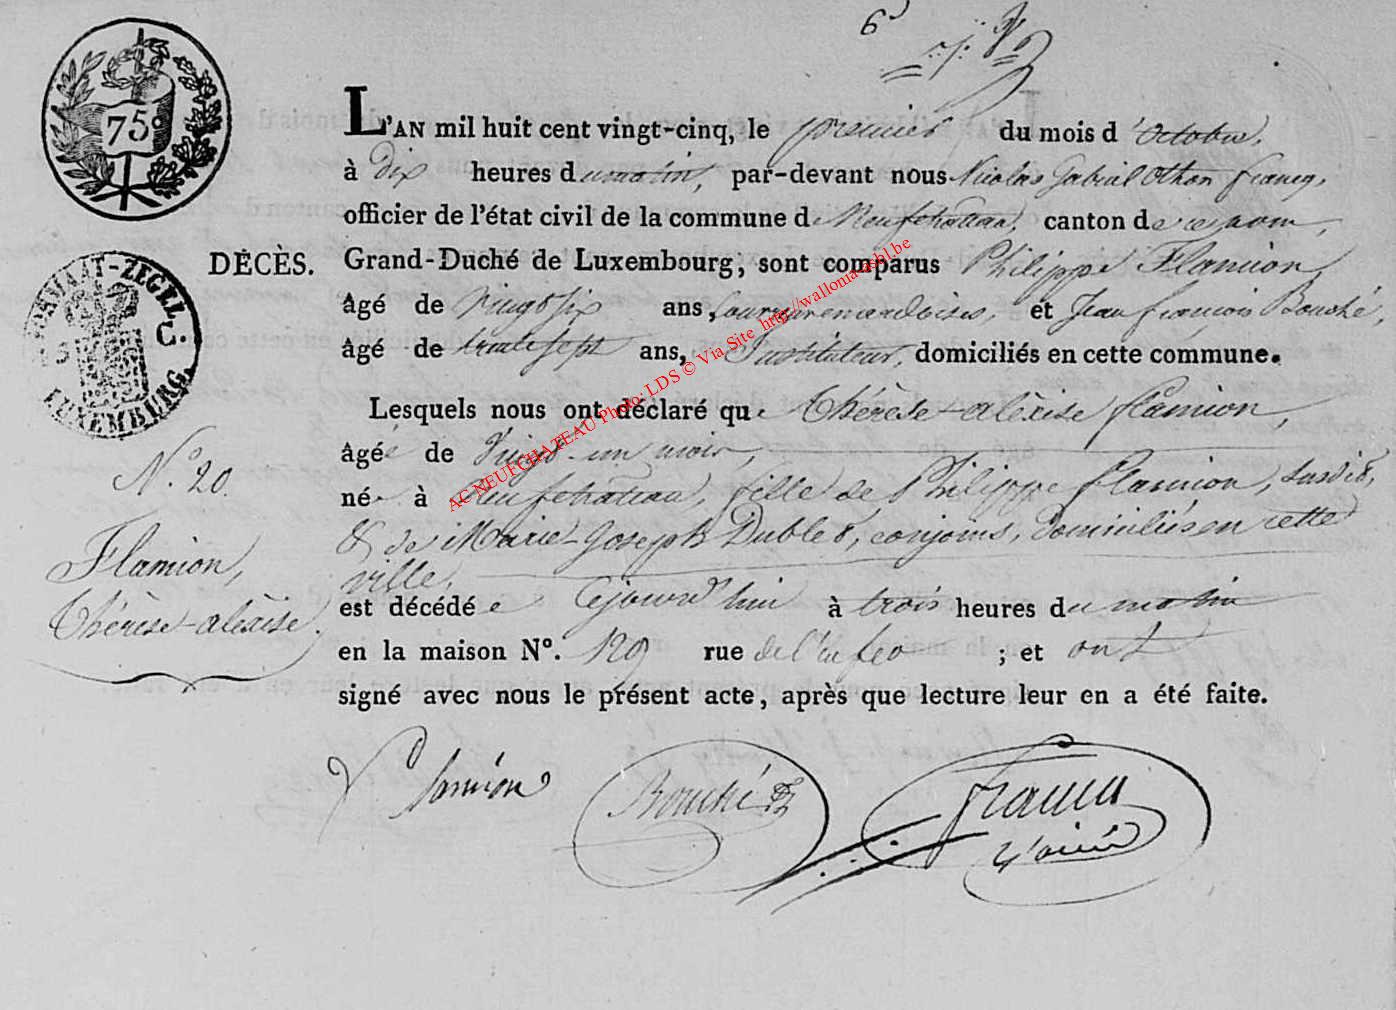 75c
FORMAAT-ZEGEL
C.
LUXEMBURG.
L'AN mil huit cent vingt-cinq, le premier du mois d'octobre,
à Dix heures du matin, par-devant nous Nicolas Gabriel Othon Francq,
officier de l'état civil de la commune de Neufchateau, canton de ce nom,
DÉCÈS. Grand-Duché de Luxembourg, sont comparus Philippe Flamion,
âgé de vingt six ans, et Jean françois Bouché,
âgé de trente sept ans, Instituteur, domiciliés en cette commune.
Lesquels nous ont déclaré que Thérèse-alèxise flamion,
âgée de Vingt-un mois,
née à Neufchateau, fille de Philippe flamion, susdit,
& de Marie-Joseph Dublet, conjoins, domiciliés en cette
ville.
est décédée Cejourd'hui à trois heures du matin
en la maison N°. 129 rue de ; et ont
signé avec nous le présent acte, après que lecture leur en a été faite.
N° 20.
Flamion,
Thérèse-alèxise.
P flamion
Bouché
Francq
l'ainé
AC NEUFCHATEAU Photo: LDS © Via Site http://wallonia-asbl.be